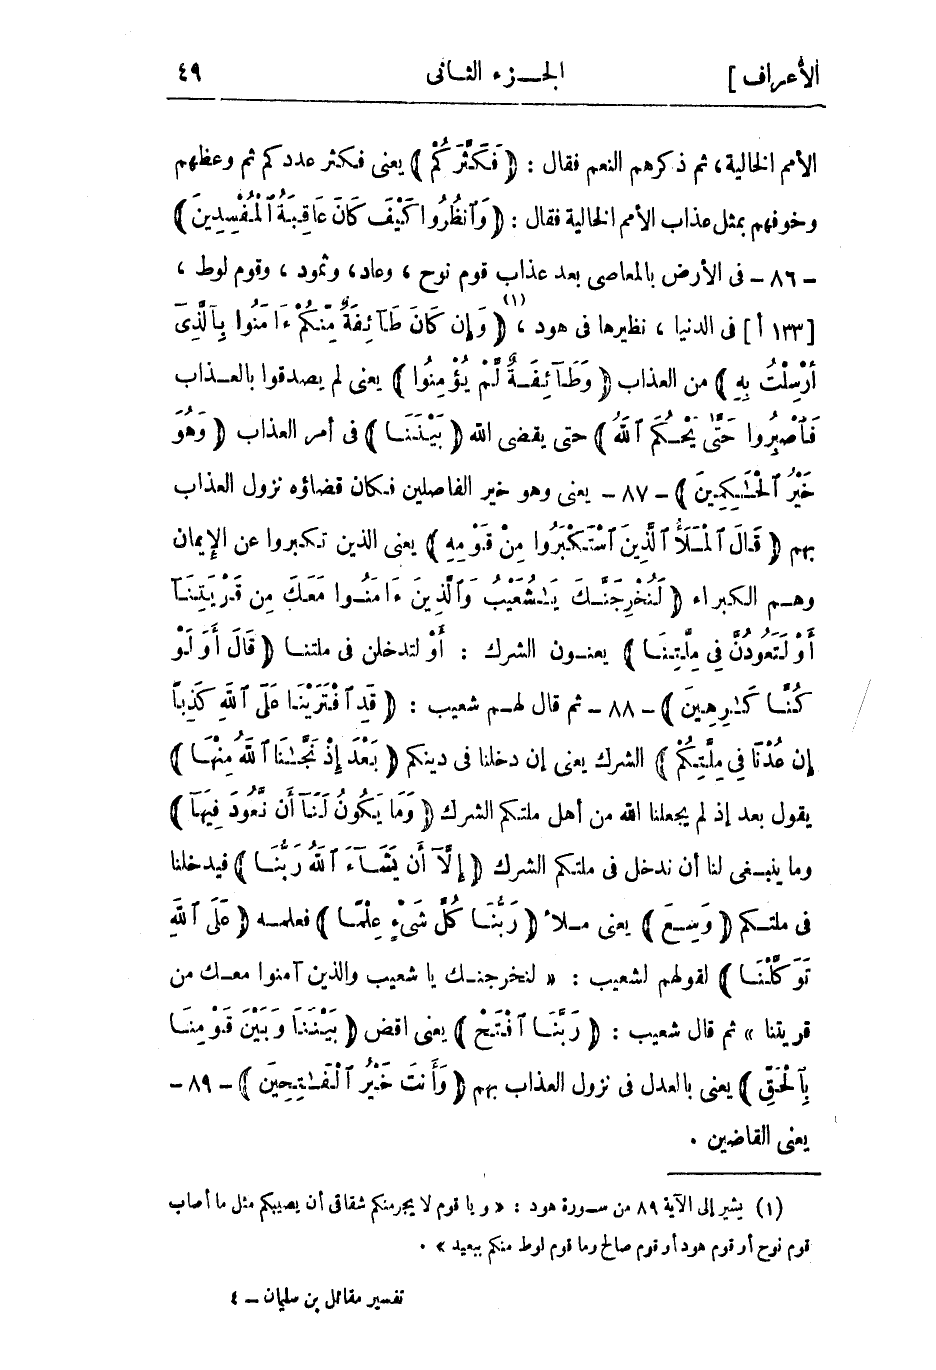 الأعراف ]
الجزء الثانى
٤٩
الأمم الخالية، ثم ذكرهم النعم فقال : ﴿ فَكَثَّرَكُمْ ﴾ يعنى فكثر عددكم ثم وعظهم
وخوفهم بمثل عذاب الأمم الخالية فقال : ﴿ وَٱنظُرُوا كَيْفَ كَانَ عَاقِبَةُ ٱلْمُفْسِدِينَ ﴾
- ٨٦ - فى الأرض بالمعاصى بعد عذاب قوم نوح ، وعاد، وثمود ، وقوم لوط ،
[١٣٣ أ] فى الدنيا ، نظيرها فى هود ، (١) ﴿ وَإِن كَانَ طَآئِفَةٌ مِّنكُمْ ءَامَنُوا بِٱلَّذِىٓ
أُرْسِلْتُ بِهِ ﴾ من العذاب ﴿ وَطَآئِفَةٌ لَّمْ يُؤْمِنُوا ﴾ يعنى لم يصدقوا بالعذاب
فَٱصْبِرُوا حَتَّىٰ يَحْكُمَ ٱللَّهُ ﴾ حتى يقضى الله ﴿ بَيْنَنَا ﴾ فى أمر العذاب ﴿ وَهُوَ
خَيْرُ ٱلْحَٰكِمِينَ ﴾ - ٨٧ - يعنى وهو خير الفاصلين فكان قضاؤه نزول العذاب
بهم ﴿ قَالَ ٱلْمَلَأُ ٱلَّذِينَ ٱسْتَكْبَرُوا مِنْ قَوْمِهِ ﴾ يعنى الذين تكبروا عن الإيمان
وهم الكبراء ﴿ لَنُخْرِجَنَّكَ يَٰشُعَيْبُ وَٱلَّذِينَ ءَامَنُوا مَعَكَ مِن قَرْيَتِنَآ
أَوْ لَتَعُودُنَّ فِى مِلَّتِنَا ﴾ يعنون الشرك : أَوْ لتدخلن فى ملتنا ﴿ قَالَ أَوَ لَوْ
كُنَّا كَٰرِهِينَ ﴾ - ٨٨ - ثم قال لهم شعيب : ﴿ قَدِ ٱفْتَرَيْنَا عَلَى ٱللَّهِ كَذِبًا
إِن عُدْنَا فِى مِلَّتِكُمْ ﴾ الشرك يعنى إن دخلنا فى دينكم ﴿ بَعْدَ إِذْ نَجَّٰنَا ٱللَّهُ مِنْهَا ﴾
يقول بعد إذ لم يجعلنا الله من أهل ملتكم الشرك ﴿ وَمَا يَكُونُ لَنَآ أَن نَّعُودَ فِيهَآ ﴾
وما ينبغى لنا أن ندخل فى ملتكم الشرك ﴿ إِلَّآ أَن يَشَآءَ ٱللَّهُ رَبُّنَا ﴾ فيدخلنا
فى ملتكم ﴿ وَسِعَ ﴾ يعنى ملأ ﴿ رَبُّنَا كُلَّ شَىْءٍ عِلْمًا ﴾ فعلمه ﴿ عَلَى ٱللَّهِ
تَوَكَّلْنَا ﴾ لقولهم لشعيب : « لنخرجنك يا شعيب والذين آمنوا معك من
قريتنا » ثم قال شعيب : ﴿ رَبَّنَا ٱفْتَحْ ﴾ يعنى اقض ﴿ بَيْنَنَا وَبَيْنَ قَوْمِنَا
بِٱلْحَقِّ ﴾ يعنى بالعدل فى نزول العذاب بهم ﴿ وَأَنتَ خَيْرُ ٱلْفَٰتِحِينَ ﴾ - ٨٩ -
يعنى القاضين .
(١) يشير إلى الآية ٨٩ من سورة هود : « ويا قوم لا يجرمنكم شقاقى أن يصيبكم مثل ما أصاب
قوم نوح أو قوم هود أو قوم صالح وما قوم لوط منكم ببعيد » .
تفسير مقاتل بن سليمان - ٤